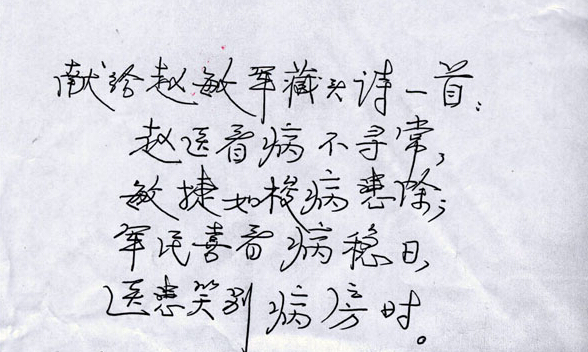 献给赵敏军藏头诗一首：
赵医看病不寻常，
敏捷如梭病患除；
军民喜看病稳日，
医患笑别病房时。